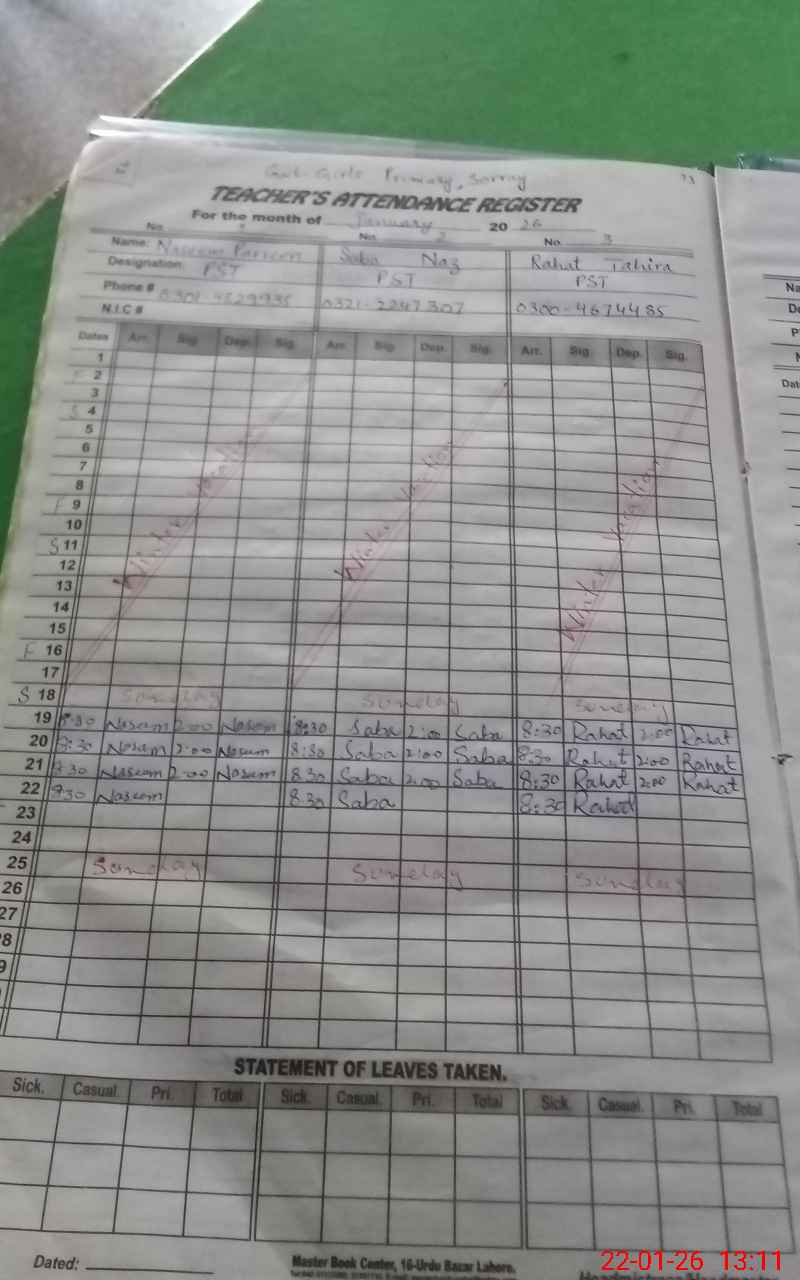 Govt Girls Primary, Sarray 73
TEACHER'S ATTENDANCE REGISTER
For the month of January 2026
No. 1 No. 2 No. 3
Name: Naseem Parveen Saba Naz Rahat Tahira
Designation: PST PST PST
Phone # 0321-2247307 0300-4674485
N.I.C #
Dates Arr. Sig. Dep. Sig. Arr. Sig. Dep. Sig. Arr. Sig. Dep. Sig.
1
F 2
3
S 4
5
6
7
8
F 9
10
S 11
12
13
14
15
F 16
17
Winter Vacation Winter Vacation Winter Vacation
S 18 Sunday Sunday Sunday
19 8:30 Naseem 2:00 Naseem 8:30 Saba 2:00 Saba 8:30 Rahat 2:00 Rahat
20 8:30 Naseem 2:00 Naseem 8:30 Saba 2:00 Saba 8:30 Rahat 2:00 Rahat
21 8:30 Naseem 2:00 Naseem 8:30 Saba 2:00 Saba 8:30 Rahat 2:00 Rahat
22 8:30 Naseem 8:30 Saba 8:30 Rahat
23
24
25 Sunday Sunday Sunday
26
27
8
9
STATEMENT OF LEAVES TAKEN.
Sick. Casual. Pri. Total Sick. Casual. Pri. Total Sick. Casual. Pri. Total
Dated:
Master Book Center, 16-Urdu Bazar Lahore.
22-01-26 13:11